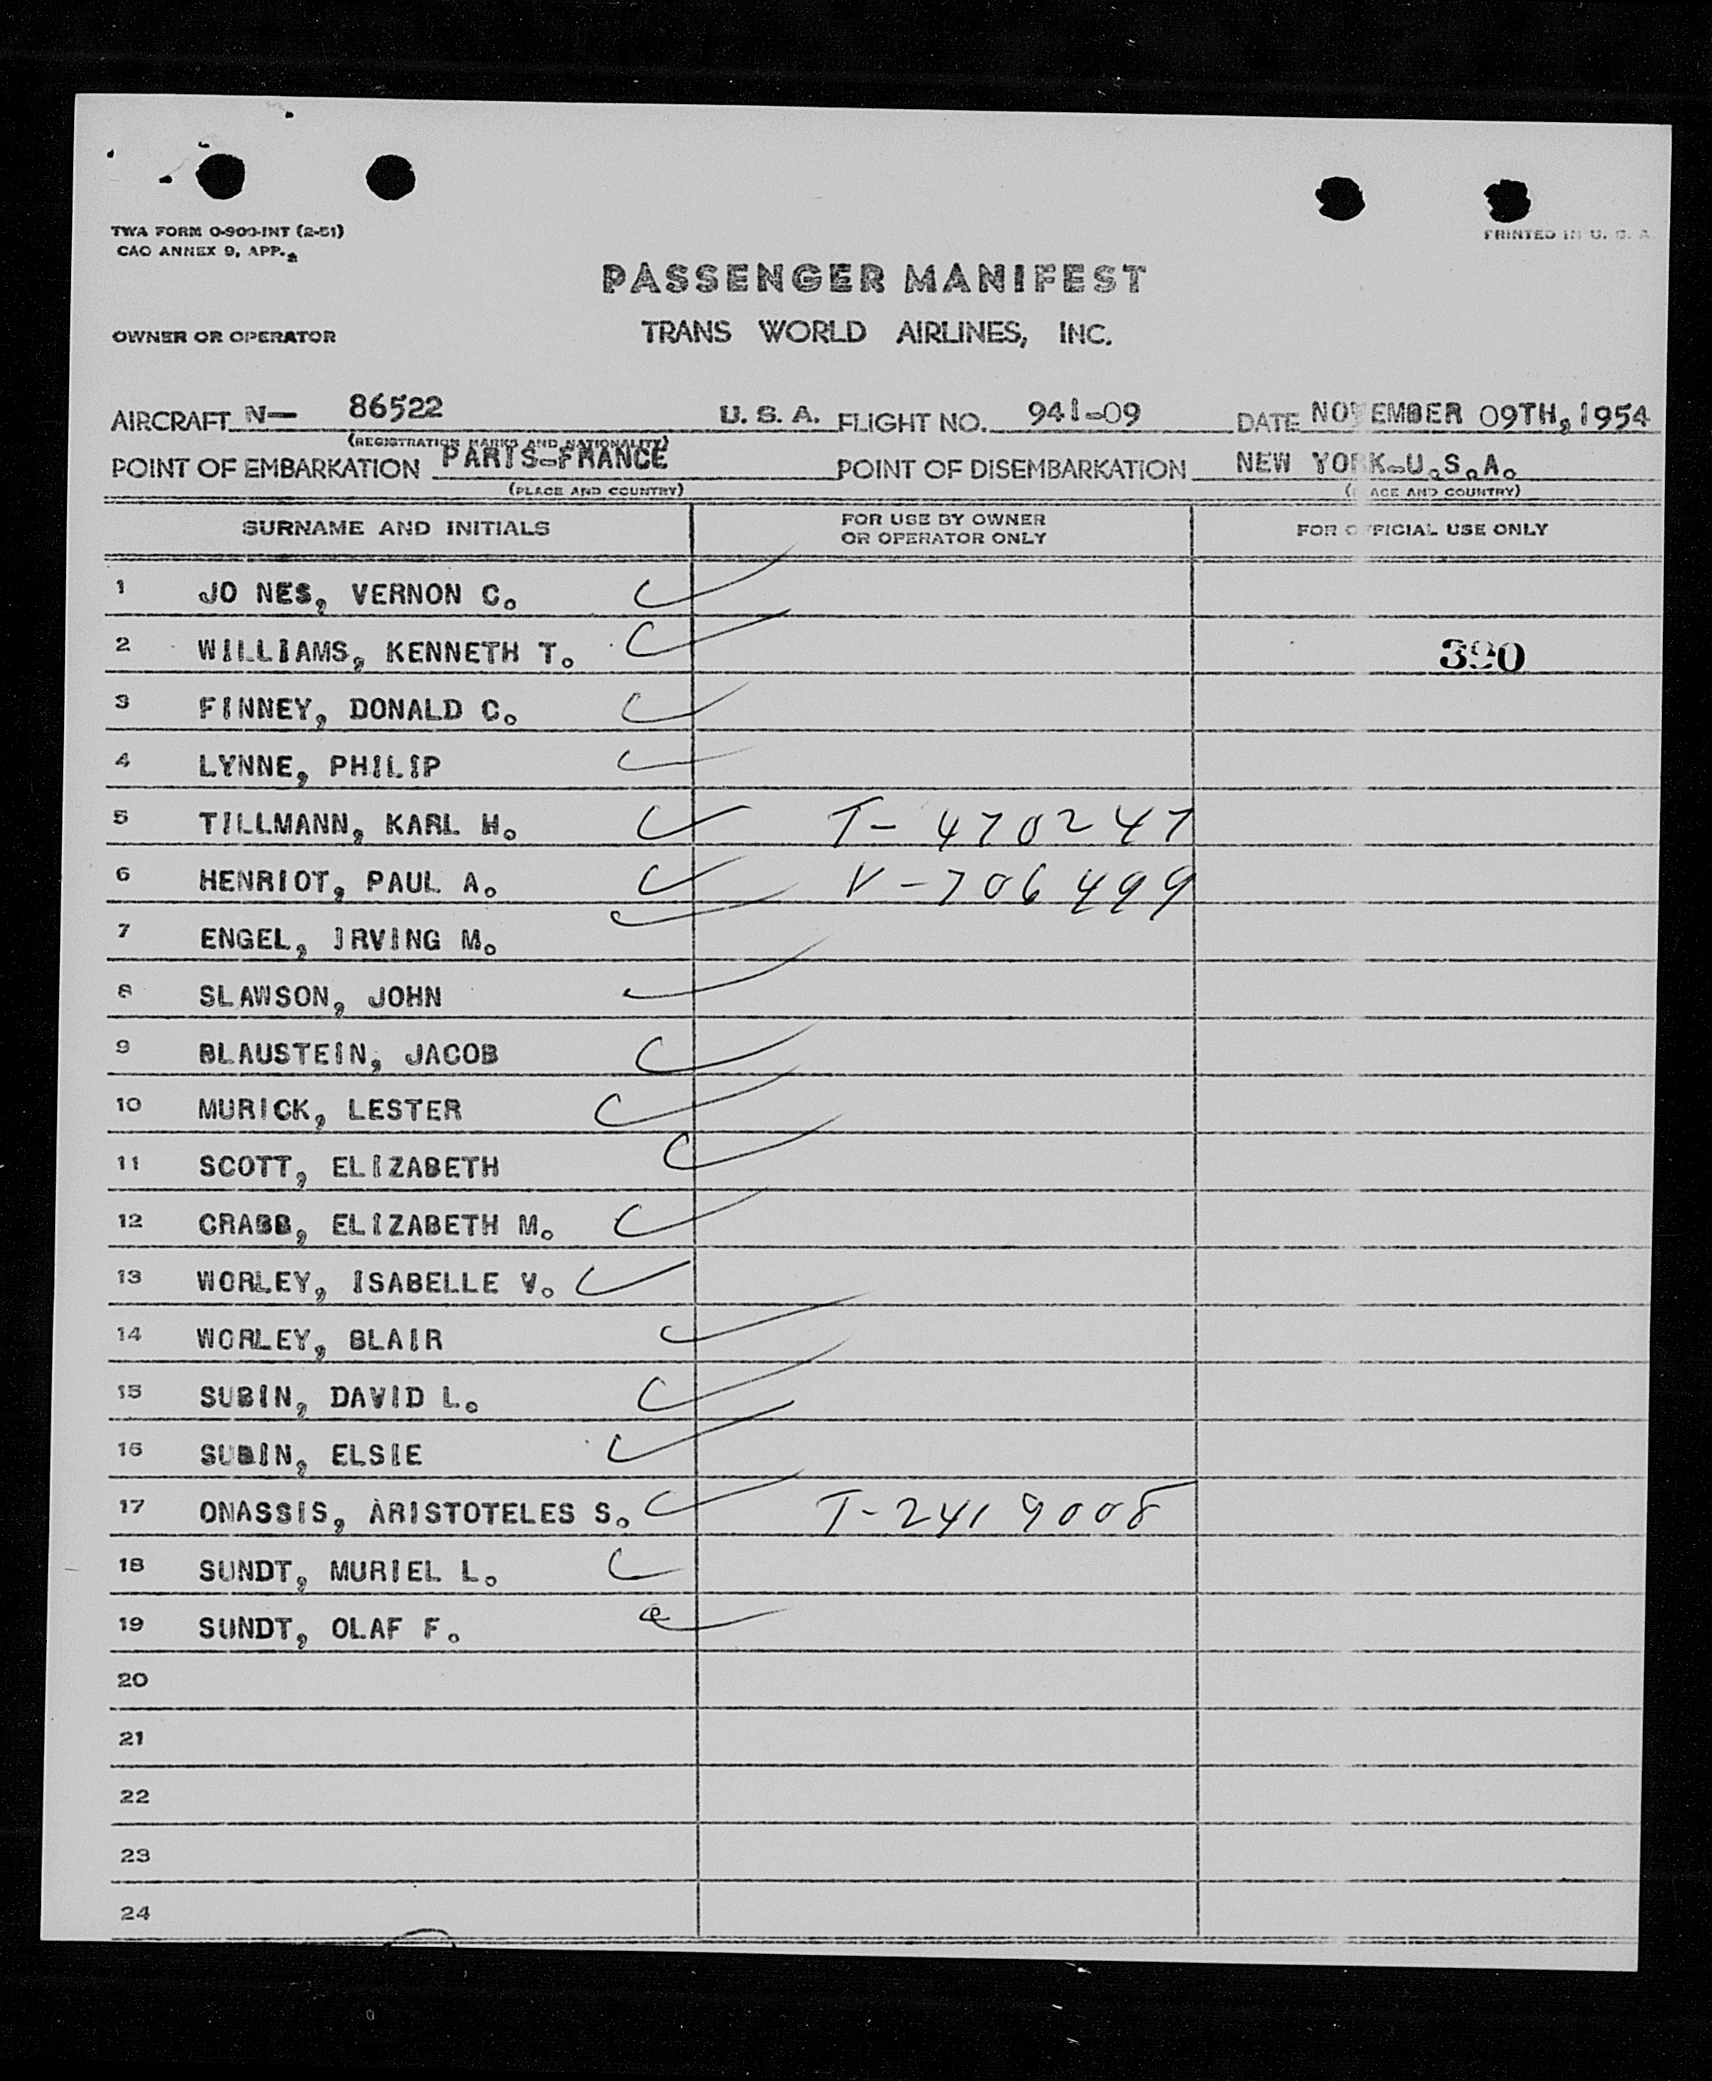 TWA FORM O-900-INT (2-51)
CAO ANNEX 9, APP. 2
PRINTED IN U. S. A.
PASSENGER MANIFEST
OWNER OR OPERATOR
TRANS WORLD AIRLINES, INC.
AIRCRAFT N— 86522 U. S. A. FLIGHT NO. 941-09 DATE NOVEMBER 09TH, 1954
(REGISTRATION MARKS AND NATIONALITY)
POINT OF EMBARKATION PARIS-FRANCE POINT OF DISEMBARKATION NEW YORK-U.S.A.
(PLACE AND COUNTRY) (PLACE AND COUNTRY)
SURNAME AND INITIALS FOR USE BY OWNER OR OPERATOR ONLY FOR OFFICIAL USE ONLY
1 JO NES, VERNON C.
2 WILLIAMS, KENNETH T. 390
3 FINNEY, DONALD C.
4 LYNNE, PHILIP
5 TILLMANN, KARL H. T-470247
6 HENRIOT, PAUL A. V-706499
7 ENGEL, IRVING M.
8 SLAWSON, JOHN
9 BLAUSTEIN, JACOB
10 MURICK, LESTER
11 SCOTT, ELIZABETH
12 CRABB, ELIZABETH M.
13 WORLEY, ISABELLE V.
14 WORLEY, BLAIR
15 SUBIN, DAVID L.
16 SUBIN, ELSIE
17 ONASSIS, ARISTOTELES S. T-2419008
18 SUNDT, MURIEL L.
19 SUNDT, OLAF F.
20
21
22
23
24